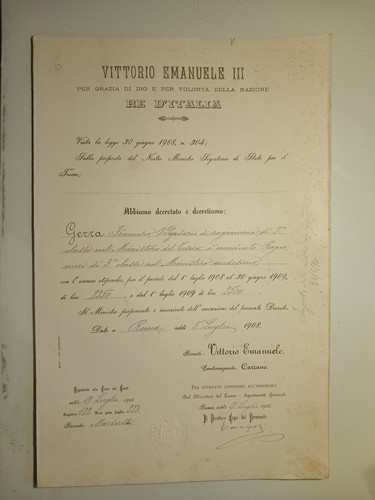 VITTORIO EMANUELE III
PER GRAZIA DI DIO E PER VOLONTÀ DELLA NAZIONE
RE D'ITALIA
Vista la legge 30 giugno 1908, n. 304;
Sulla proposta del Nostro Ministro Segretario di Stato per il
Tesoro;
Abbiamo decretato e decretiamo:
Gerra di ragioneria di
classe nel Ministero del Tesoro, è nominato Ragio
niere di 3ª classe nel Ministero medesimo,
con l'annuo stipendio, per il periodo dal 1º luglio 1908 al 30 giugno 1909,
di lire 2250 e dal 1º luglio 1909 di lire 2500.
Il Ministro proponente è incaricato dell'esecuzione del presente Decreto.
Dato a Roma addì 5 Luglio 1908.
Firmato: Vittorio Emanuele.
Controsegnato: Carcano.
Registrato alla Corte dei Conti
addì 13 Luglio 1908
Registro 172
Firmato:
PER ESTRATTO CONFORME ALL'ORIGINALE
Dal Ministero del Tesoro - Segretariato Generale
Roma, addì Luglio 1908
Il Direttore Capo del Personale